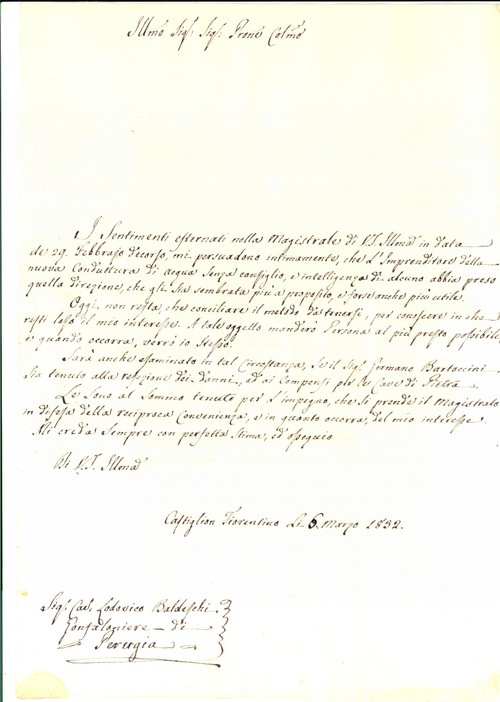 Illmo Sigr Sigr Prone Colmo
I Sentimenti esternati nella Magistrale di V.S. Illma in data
de 29. Febbrajo decorso, mi persuadono intimamente, che l'Imprenditore della
nuova Conduttura di acqua senza consiglio, e intelligenza di alcuno abbia preso
quella direzione, che gli sia sembrata più a proposito, e forse anche più utile.
Oggi non resta, che conciliare il metodo da tenersi, per conoscere in che
resti leso il mio interesse. A tale oggetto manderò Persona al più presto possibile,
e quando occorra, verrò io stesso.
Sarà anche esaminato in tal Circostanza, se il Sigr Germano Bartoccini
sia tenuto alla refezione dei danni, ed ai Compensi per le Cave di Pietra.
Le Sono al Sommo tenuto per l'impegno, che si prende il Magistrato
in difesa della reciproca Convenienza, e in quanto occorra, del mio interesse.
Mi creda sempre con perfetta stima, ed ossequio
Di V.S. Illma
Castiglion Fiorentino Li 6. Marzo 1832.
Sigr Cav. Lodovico Baldeschi
Gonfaloniere di
Perugia